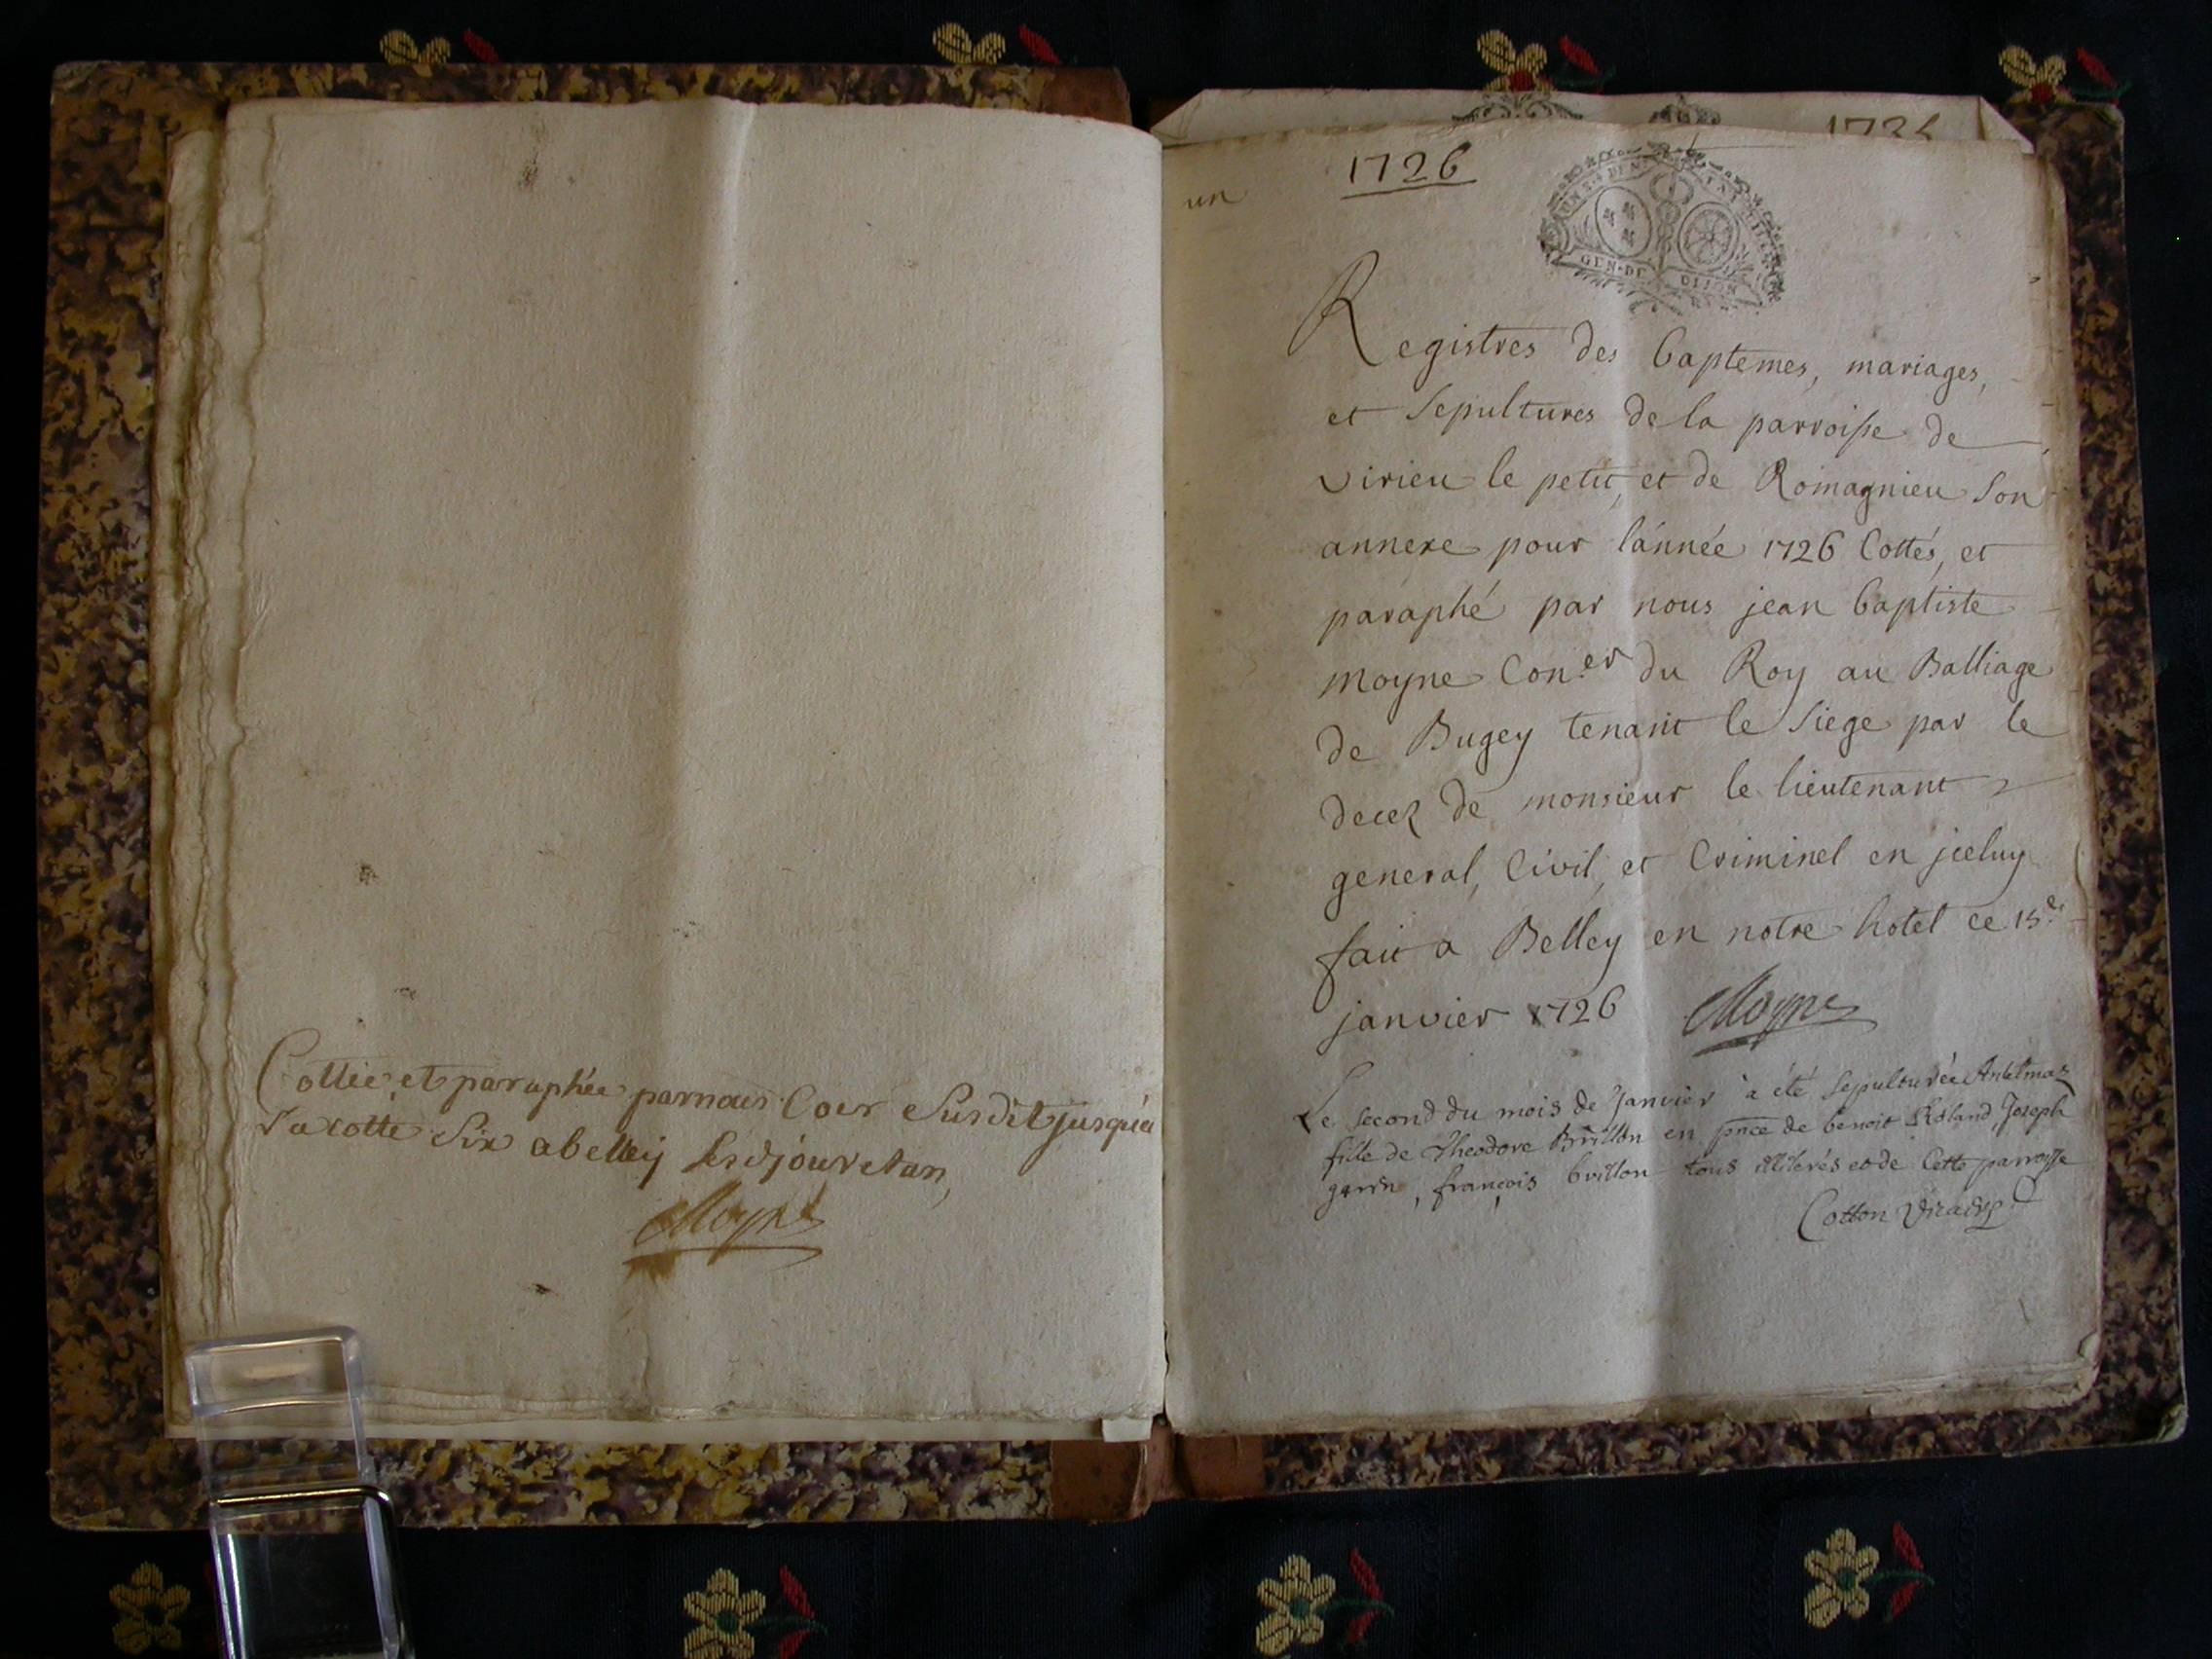 Cottée et paraphée par nous Coer Susdit jusqu'a
la cotte Six a belley lesdjour et an,
Moyne
1735
un
1726
GEN·DE DIJON
Registres des baptemes, mariages,
et Sepultures de la parroisse de
virieu le petit, et de Romagnieu Son
annexe pour l'année 1726 Cottés, et
paraphé par nous jean baptiste
moyne Con.er du Roy au Balliage
de Bugey tenant le Siege par le
decez de monsieur le lieutenant
general, Civil, et Criminel en jceluy
fait a Belley en notre hotel ce 15e
janvier 1726 Moyne
Le second du mois de Janvier a été Sepulturée
fille de Theodore Brillon en pnce de benoit Roland, Joseph
garin, françois brillon tous illiterés et de Cette parroisse
Cotton Vicaire